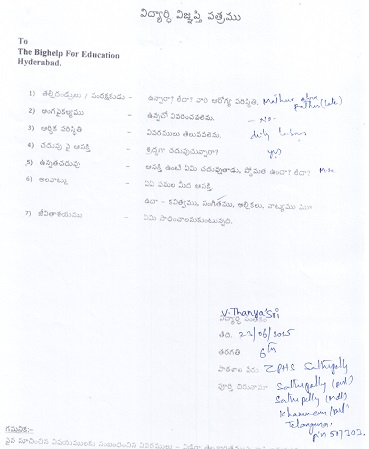 విద్యార్థి విజ్ఞప్తి పత్రము
To
The Bighelp For Education
Hyderabad.
1) తల్లిదండ్రులు / సంరక్షకుడు - ఉన్నారా? లేదా? వారి ఆరోగ్య పరిస్థితి. Mother
father (late)
2) అంగవైకల్యము - ఉన్నచో వివరించవలెను. - No -
3) ఆర్థిక పరిస్థితి - వివరములు తెలుపవలెను.
4) చదువు పై ఆసక్తి - శ్రద్ధగా చదువుచున్నారా? yes
5) ఉన్నతచదువు - ఆసక్తి ఉంటే ఏమి చదువుతాడు, స్తోమత ఉందా? లేదా?
6) అలవాట్లు - ఏ ఏ పనుల మీద ఆసక్తి.
ఉదా - కవిత్వము, సంగీతము, అల్లికలు, నాట్యము
7) జీవితాశయము - ఏమి సాధించాలనుకుంటున్నది.
V. Thanya Sri
విద్యార్థి సంతకం
తేది. 23/06/2025
తరగతి 6th
పాఠశాల పేరు: ZPHS Sathupally
పూర్తి చిరునామా: Sathupally
Sathupally (mdl)
Khammam
Telangana,
pin 507303.
గమనిక:-